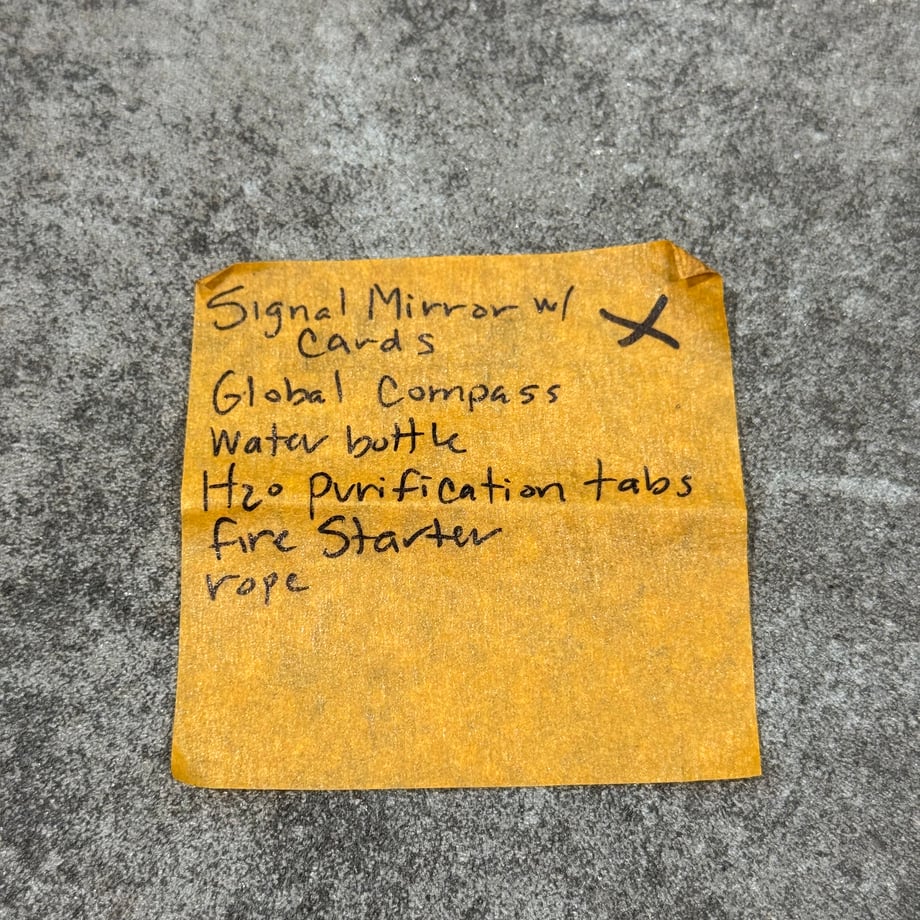 Signal Mirror w/ X
Cards
Global Compass
Water bottle
H2O purification tabs
fire Starter
rope